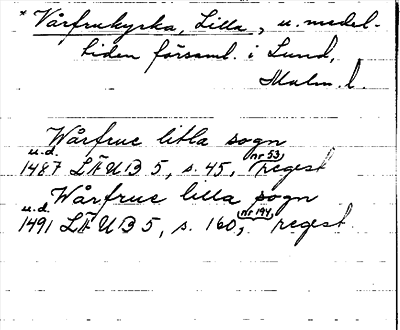 * Vårfrukyrka, Lilla, u. medel-
tiden församl. i Lund,
Malm. l.
Wårfruc litla sogn
u.d.
1487 LÄUB 5, s. 45, (nr 53) regest
Wårfruc lilla sogn
u.d.
1491 LÄUB 5, s. 160, (nr 194) regest